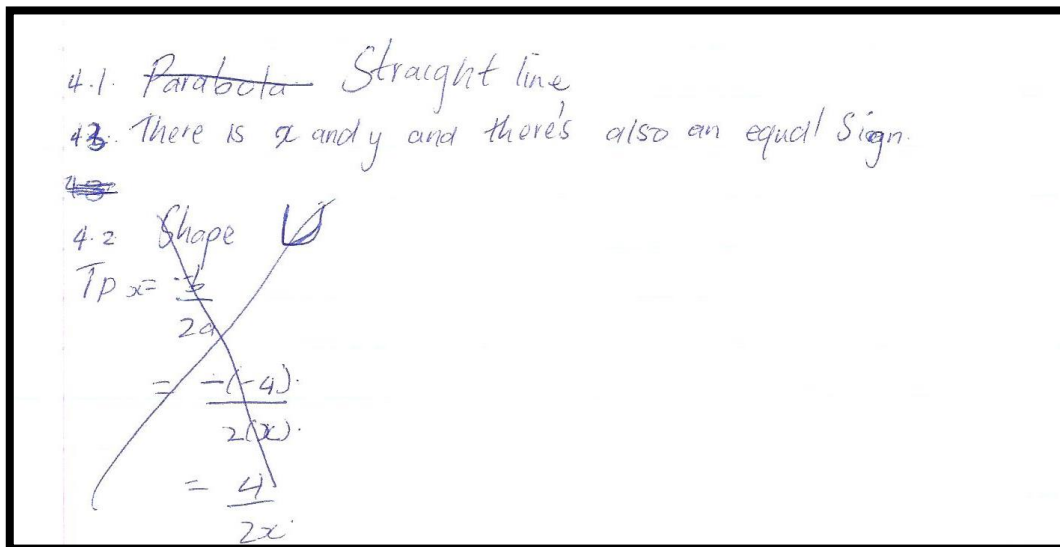 4.1. Parabola Straight line
4.3. There is x and y and there's also an equal Sign.
4.2 Shape
Tp x = -b
2a
= -(-4).
2(x).
= 4
2x